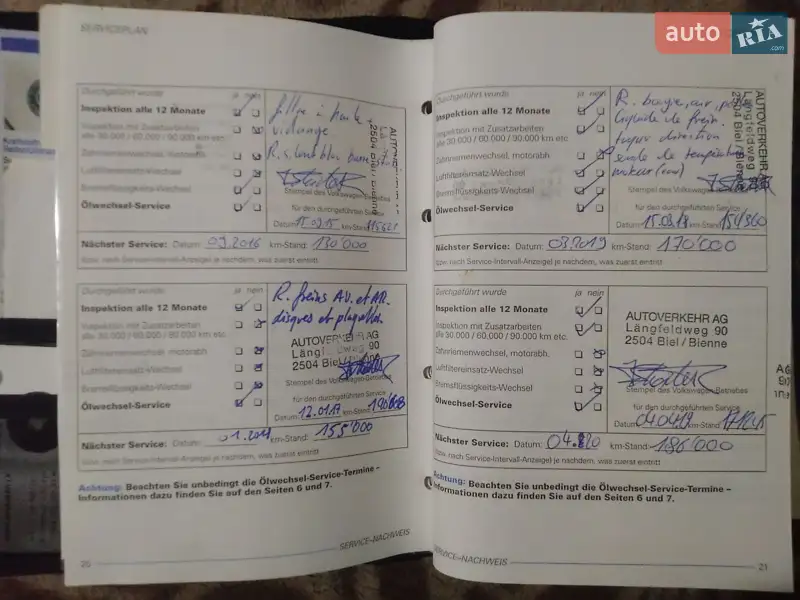 auto RIA .com
SERVICEPLAN
Durchgeführt wurde ja nein
Inspektion alle 12 Monate
Inspektion mit Zusatzarbeiten
alle 30 000 / 60 000 / 90 000 km etc.
Zahnriemenwechsel, motorabh.
Luftfiltereinsatz-Wechsel
Bremsflüssigkeits-Wechsel
Ölwechsel-Service
filtre à huile
vidange
2504 Biel / Bienne
Stempel des Volkswagen-Betriebes
für den durchgeführten Service
Datum 15.09.15 km-Stand
Nächster Service: Datum: 09.2016 km-Stand: 130'000
(bzw. nach Service-Intervall-Anzeige) je nachdem, was zuerst eintritt
Durchgeführt wurde ja nein
Inspektion alle 12 Monate
Inspektion mit Zusatzarbeiten
alle 30 000 / 60 000 / 90 000 km etc.
Zahnriemenwechsel, motorabh.
Luftfiltereinsatz-Wechsel
Bremsflüssigkeits-Wechsel
Ölwechsel-Service
R. freins AV. et AR.
disques et plaquettes
AUTOVERKEHR AG
Längfeldweg 90
2504 Biel / Bienne
Stempel des Volkswagen-Betriebes
für den durchgeführten Service
Datum 12.01.17 km-Stand
Nächster Service: Datum: km-Stand: 155'000
(bzw. nach Service-Intervall-Anzeige) je nachdem, was zuerst eintritt
Achtung: Beachten Sie unbedingt die Ölwechsel-Service-Termine –
Informationen dazu finden Sie auf den Seiten 6 und 7.
20 SERVICE-NACHWEIS
Durchgeführt wurde ja nein
Inspektion alle 12 Monate
Inspektion mit Zusatzarbeiten
alle 30 000 / 60 000 / 90 000 km etc
Zahnriemenwechsel, motorabh
Luftfiltereinsatz-Wechsel
Bremsflüssigkeits-Wechsel
Ölwechsel-Service
R. bougie, air,
liquide de frein.
direction
sonde de température
moteur
AUTOVERKEHR AG
Längfeldweg 90
2504 Biel / Bienne
Stempel des Volkswagen-Betriebes
für den durchgeführten Service
Datum 15.03.18 km-Stand 154'360
Nächster Service: Datum: 03.2019 km-Stand: 170'000
(bzw. nach Service-Intervall-Anzeige) je nachdem, was zuerst eintritt
Durchgeführt wurde ja nein
Inspektion alle 12 Monate
Inspektion mit Zusatzarbeiten
alle 30 000 / 60 000 / 90 000 km etc.
Zahnriemenwechsel, motorabh.
Luftfiltereinsatz-Wechsel
Bremsflüssigkeits-Wechsel
Ölwechsel-Service
AUTOVERKEHR AG
Längfeldweg 90
2504 Biel / Bienne
Stempel des Volkswagen-Betriebes
für den durchgeführten Service
Datum 04.04.19 km-Stand
Nächster Service: Datum: 04.20 km-Stand: 186'000
(bzw. nach Service-Intervall-Anzeige) je nachdem, was zuerst eintritt
Achtung: Beachten Sie unbedingt die Ölwechsel-Service-Termine –
Informationen dazu finden Sie auf den Seiten 6 und 7.
SERVICE-NACHWEIS 21